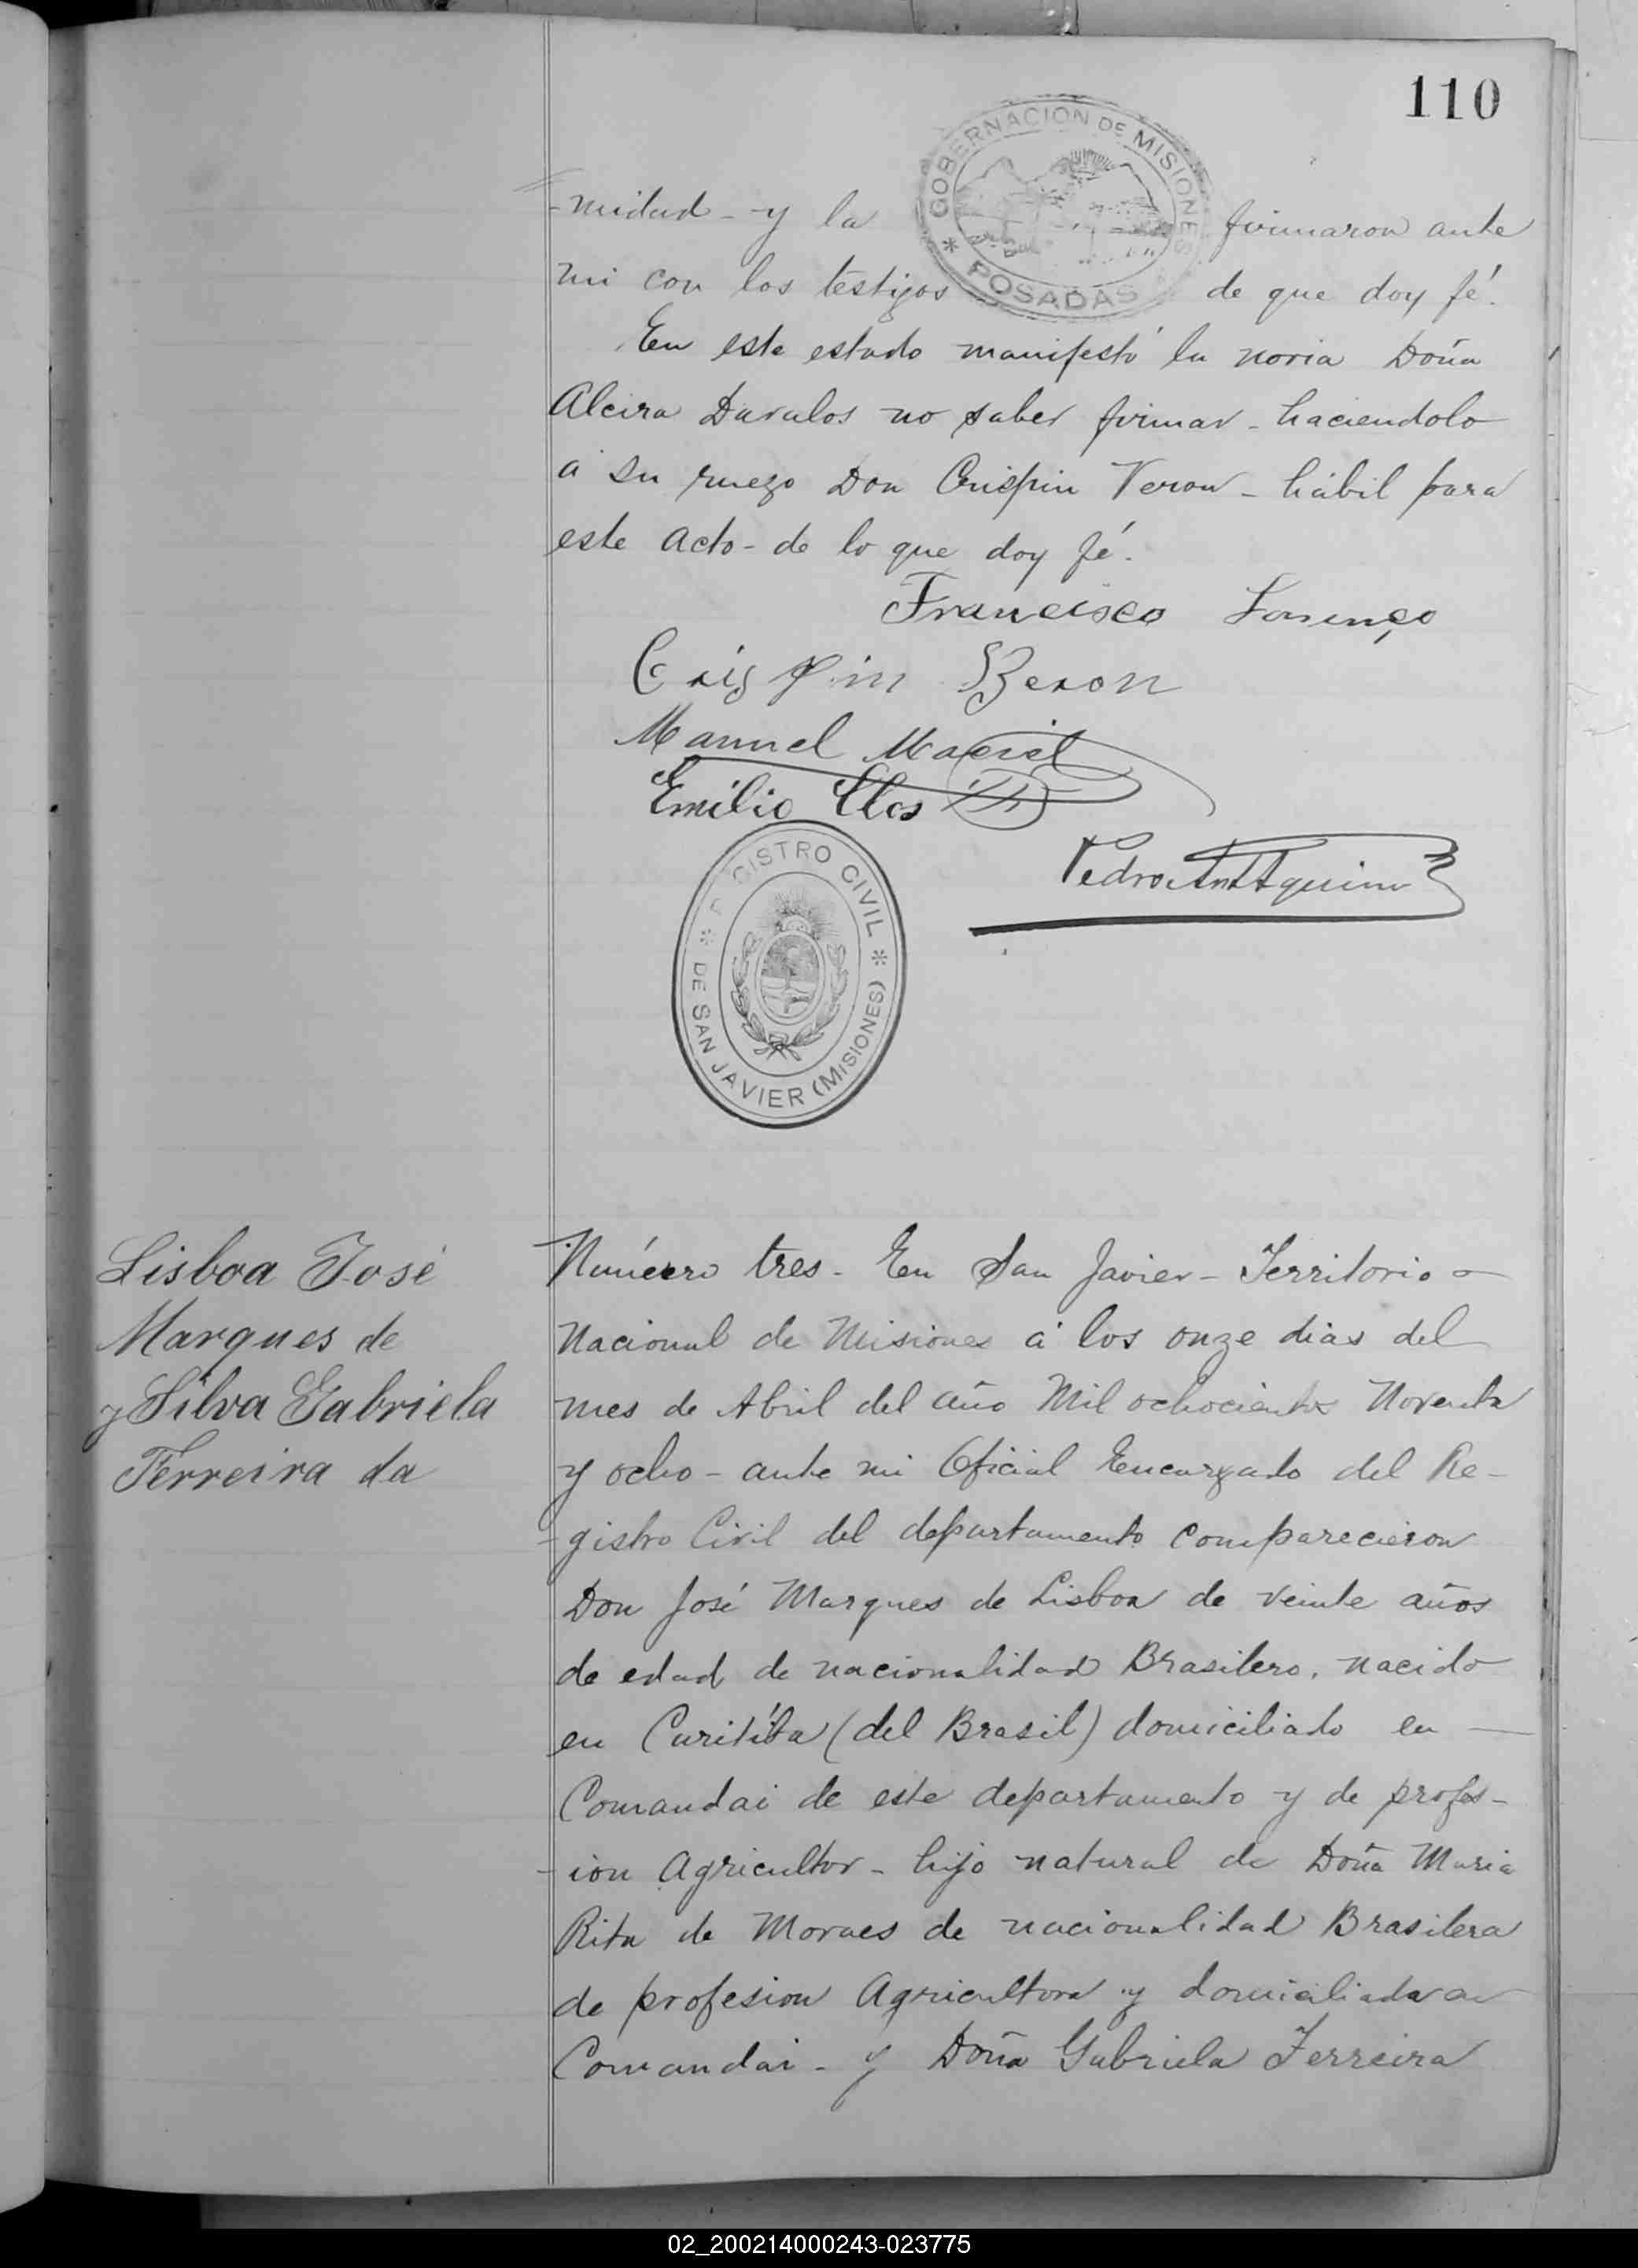 110
GOBERNACION DE MISIONES
* POSADAS
-midad - y la firmaron ante
mi con los testigos de que doy fé.
En este estado manifestó la novia Doña
Alcira Davalos no saber firmar - haciendolo
á su ruego Don Crispin Veron - hábil para
este acto - de lo que doy fé.
Francisco Lorenço
Crispin Beron
Manuel Maciel
Emilio Clos
Pedro Ant Aquino
REGISTRO CIVIL
* DE SAN JAVIER (MISIONES) *
Lisboa José
Marques de
y Silva Gabriela
Ferreira da
Número tres - En San Javier - Territorio
Nacional de Misiones á los onze dias del
mes de Abril del año Mil ochocientos Noventa
y ocho - ante mi Oficial Encargado del Re-
-gistro Civil del departamento comparecieron
Don José Marques de Lisboa de veinte años
de edad de nacionalidad Brasilero, nacido
en Curitíba (del Brasil) domiciliado en
Comandai de este departamento y de profes-
-ion Agricultor - hijo natural de Doña Maria
Rita de Moraes de nacionalidad Brasilera
de profesion Agricultora y domiciliada en
Comandai - y Doña Gabriela Ferreira
02_200214000243-023775